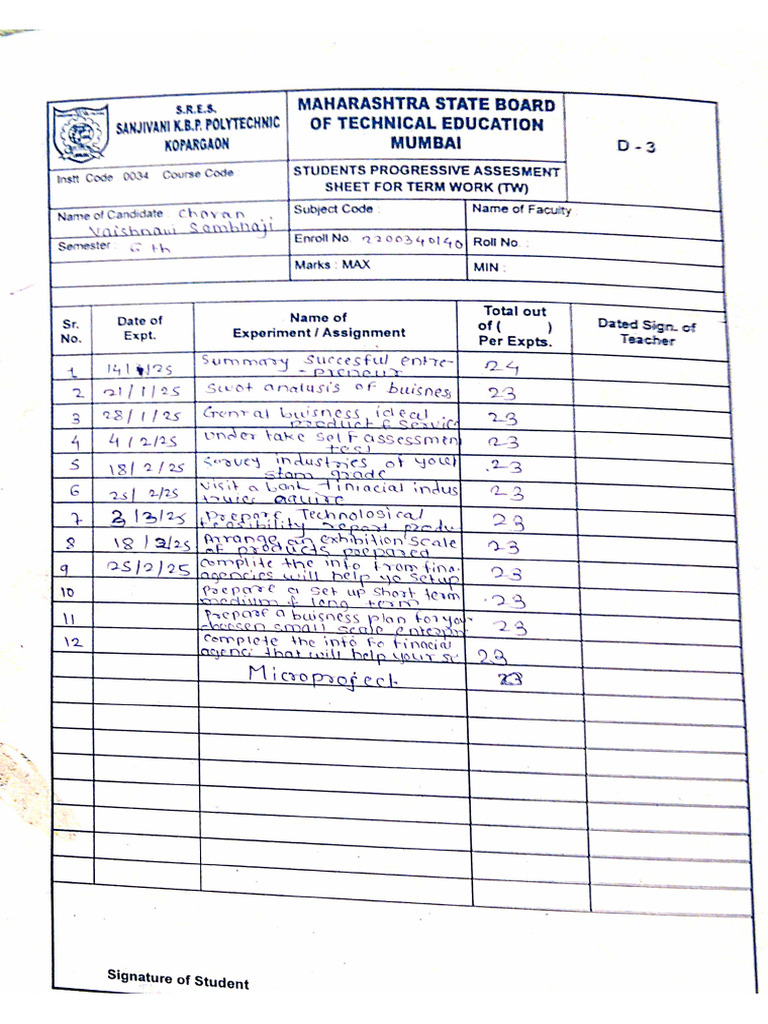 S.R.E.S.
SANJIVANI K.B.P. POLYTECHNIC
KOPARGAON
MAHARASHTRA STATE BOARD
OF TECHNICAL EDUCATION
MUMBAI
D - 3
Instt Code 0034 Course Code
STUDENTS PROGRESSIVE ASSESMENT
SHEET FOR TERM WORK (TW)
Name of Candidate : Chavan
Vaishnavi Sambhaji
Subject Code :
Name of Faculty :
Semester : 6 th
Enroll No. 2200340140
Roll No. :
Marks : MAX
MIN :
Sr. No.
Date of Expt.
Name of Experiment / Assignment
Total out of ( ) Per Expts.
Dated Sign. of Teacher
1 14/1/25 Summary Succesful entre- 24
-preneur
2 21/1/25 Swot analysis of buisness 23
3 28/1/25 Genral buisness, ideal 23
product & service
4 4/2/25 under take self assessmen 23
test
5 18/2/25 Survey industries of your 23
stam grade
6 25/2/25 visit a bank finiacial indus 23
truies aquire
7 3/3/25 prepare Technological 23
feasibility report produ
8 18/3/25 Arrange an exhibition scale 23
of products prepared
9 25/2/25 complite the info from fina 23
agencies will help yo setup
10 prepare a set up short term 23
medium & long term
11 prepare a buisness plan for your 23
choosen small scale enterpr
12 complete the info fo finacial 23
agenci that will help your se
Microproject 23
Signature of Student